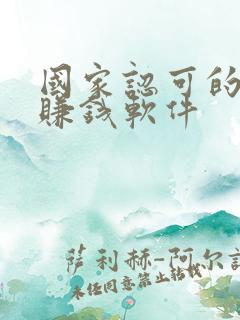 國家認可的
賺錢軟件
薩利赫-阿尔謝
未经同意禁止转载